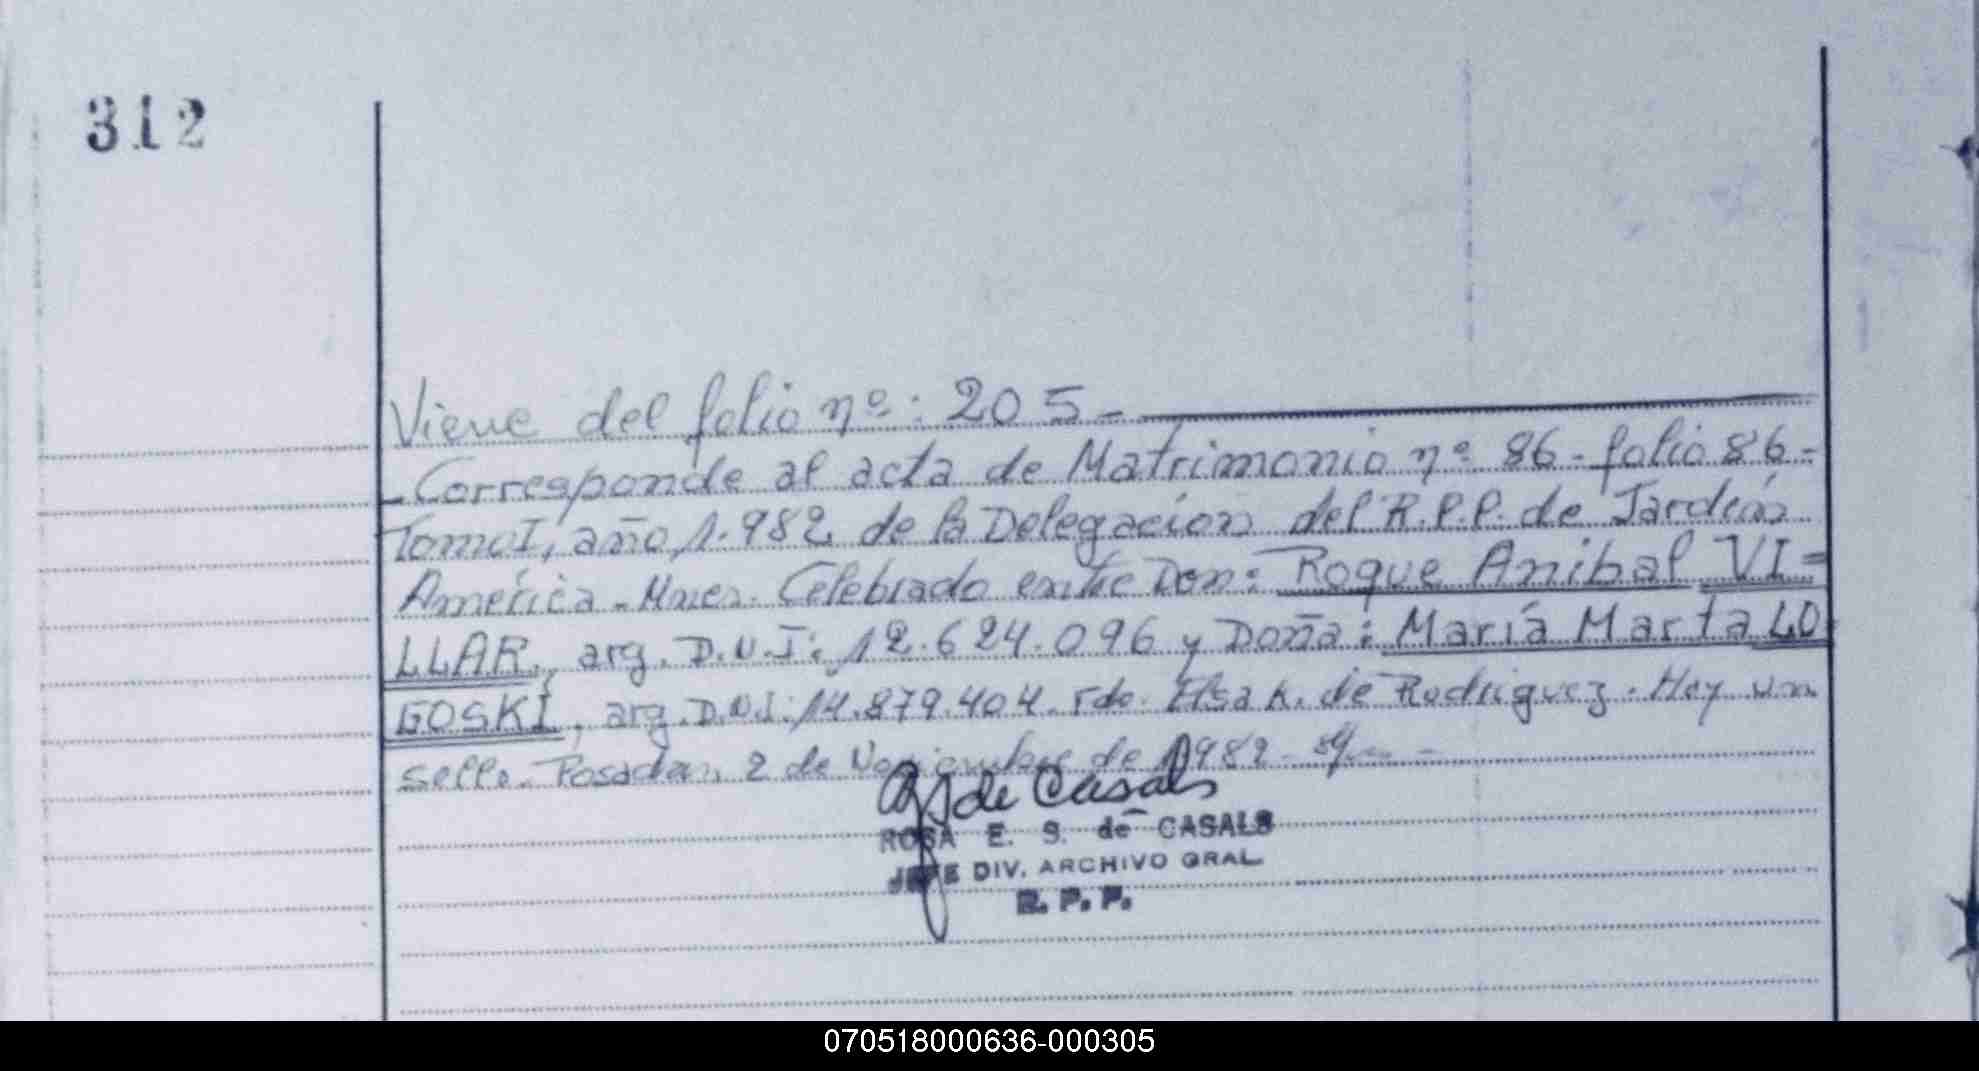 312
Viene del folio nº: 205-
-Corresponde al acta de Matrimonio nº 86-folio 86-
Tomo I, año 1.982 de la Delegación del R.P.P. de Jardín
América - Mnes. Celebrado entre Don: Roque Anibal VI=
LLAR, arg. D.N.I: 12.624.096 y Doña: María Marta LO
GOSKI, arg. D.N.I: 14.879.404. Fdo. Elsa K. de Rodriguez. Hay un
sello. Posadas, 2 de Noviembre de 1982-
de Casals
ROSA E. S. de CASALS
JEFE DIV. ARCHIVO GRAL.
R. P. P.
070518000636-000305